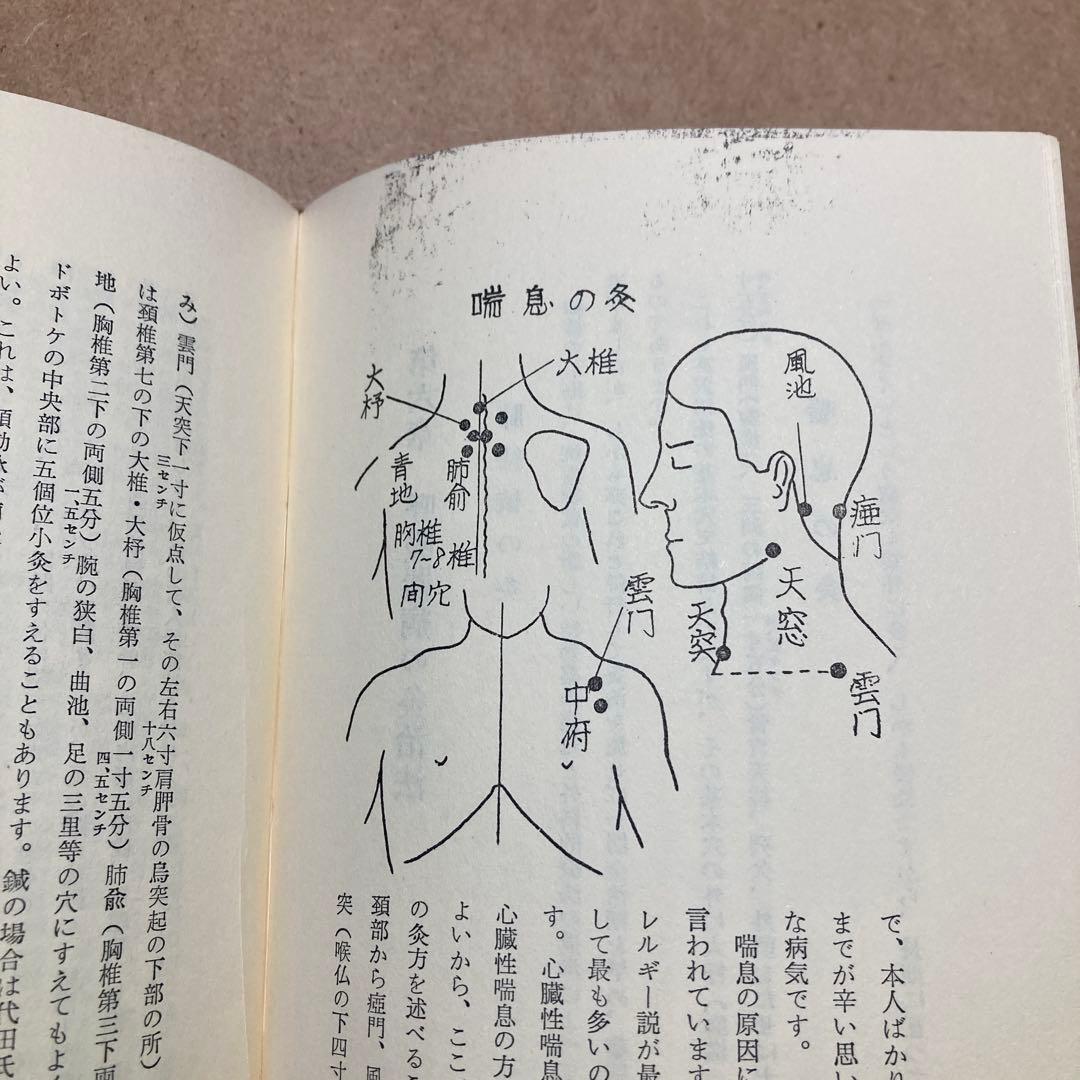 喘息の灸
大椎
大杼
青地
肺俞
胸椎
7~8椎
間穴
風池
瘂门
天窓
天突
雲门
雲门
中府
で、本人ばかり
までが辛い思い
な病気です。
喘息の原因に
言われています
レルギー説が最
して最も多いの
す。心臓性喘息
心臓性喘息の方
よいから、ここ
の灸方を述べるこ
頚部から瘂門、風
突（喉仏の下四寸
み）雲門（天突下一寸に仮点して、その左右六寸肩胛骨の烏突起の下部の所）
三センチ
十八センチ
は頚椎第七の下の大椎・大杼（胸椎第一の両側一寸五分）肺兪（胸椎第三下両
四、五センチ
地（胸椎第二下の両側五分）腕の狭白、曲池、足の三里等の穴にすえてもよ
一、五センチ
ドボトケの中央部に五個位小灸をすえることもあります。鍼の場合は代田氏
よい。これは、